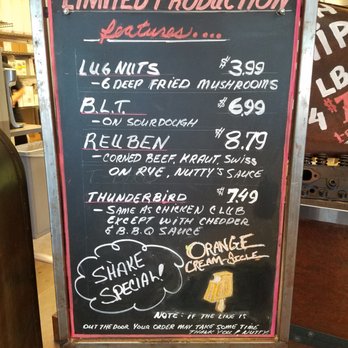 LIMITED PRODUCTION
features....
LUGNUTS $3.99
- 6 DEEP FRIED MUSHROOMS
B.L.T. $6.99
- ON SOURDOUGH
REUBEN $8.79
- CORNED BEEF, KRAUT, SWISS
ON RYE, NUTTY'S SAUCE
THUNDERBIRD $7.49
- SAME AS CHICKEN CLUB
EXCEPT WITH CHEDDER
& B.B.Q SAUCE
SHAKE
SPECIAL!
ORANGE
CREAM-SICLE
NOTE: IF THE LINE IS
OUT THE DOOR YOUR ORDER MAY TAKE SOME TIME
THANK YOU! NUTTY